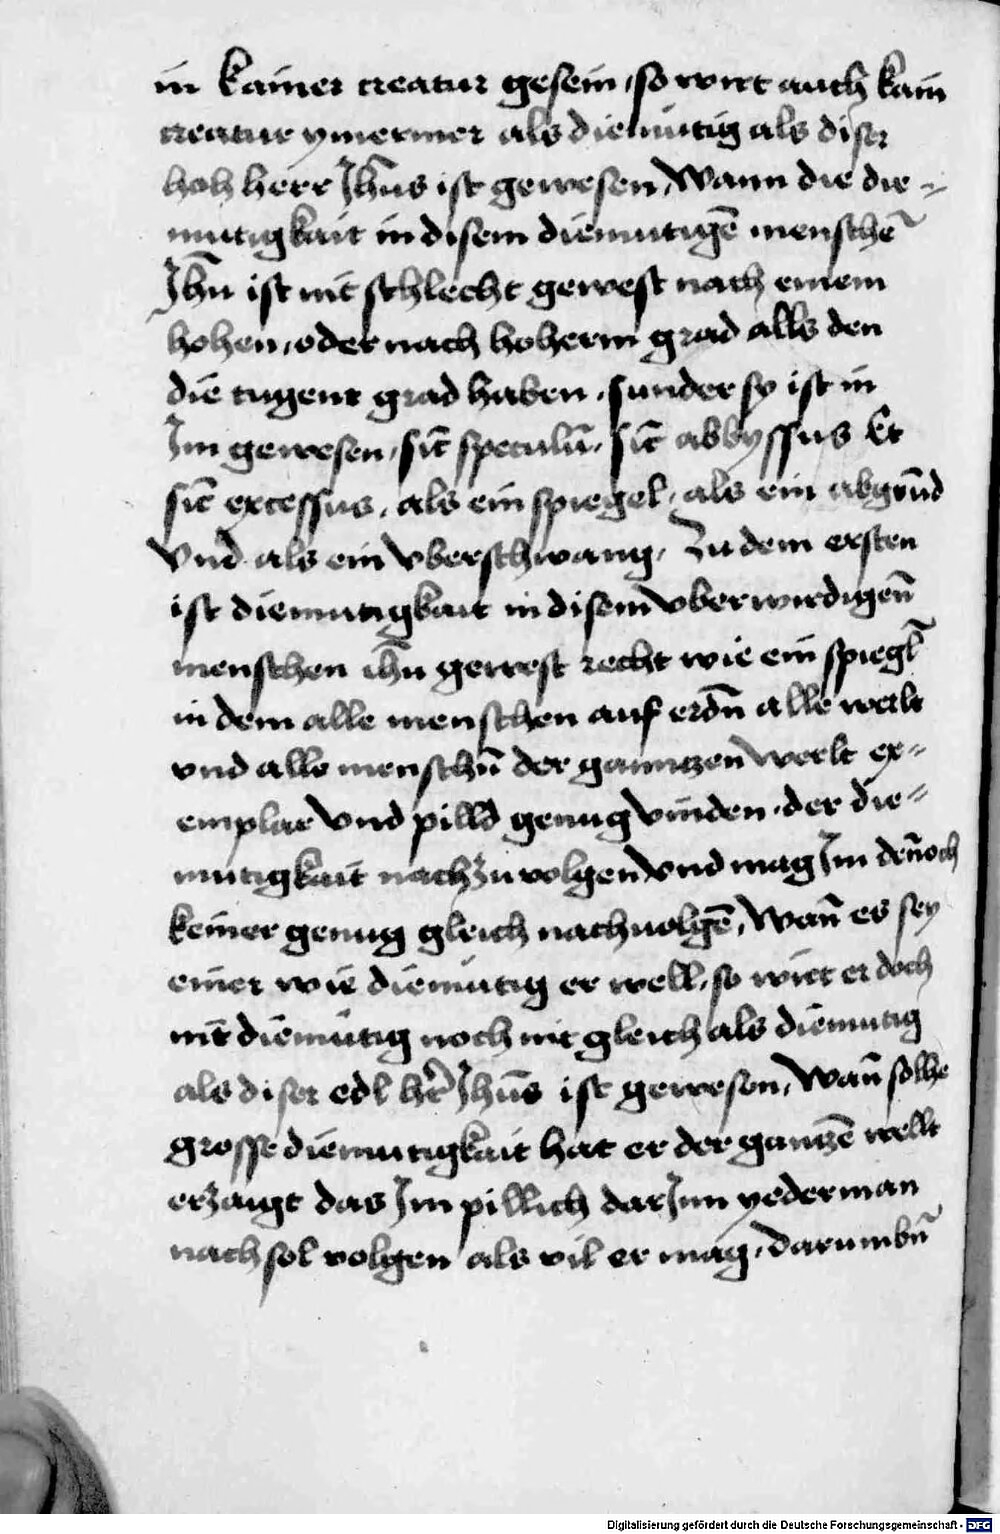 in kainer creatur gesein, so wirt auch kain
creatur ymermer als diemütig als diser
hoh herr Jh̄us ist gewesen, Wann die die=
mutigkait in disem diemutigē menschē
Jh̄u ist nit schlecht gewest nach einem
hohen, oder nach hoherm grad alls den
die tugent grad haben, sunder sy ist in
Im gewesen, sic̄ speculū, sic̄ abbyssus Et
sic̄ excessus, als ein spiegel, als ein abgrūd
vnd als ein vberschwang, Zu dem ersten
ist diemutigkait in disem vberwirdigen̄
menschen ih̄u gewest recht wie ein spiegl̄
in dem alle menschen auf erdn̄ alle werlt
vnd alle menschn̄ der ganntzen werlt ex=
emplar vnd pilld genug vinden, der die=
mutigkait nach zu volgen vnd mag Im den̄och
keiner genug gleich nachuolgē, Wan̄ es sey
einer wie diemütig er well, so wirt er doch
nit diemütig noch nit gleich als diemutig
als diser edl hr̄ Jhūs ist gewesen, Wan̄ solhe
grosse diemutigkait hat er der gantzē wellt
erzaigt das Im pillich dar Inn yederman
nach sol volgen als vil er mag, darumbn̄
Digitalisierung gefördert durch die Deutsche Forschungsgemeinschaft - DFG